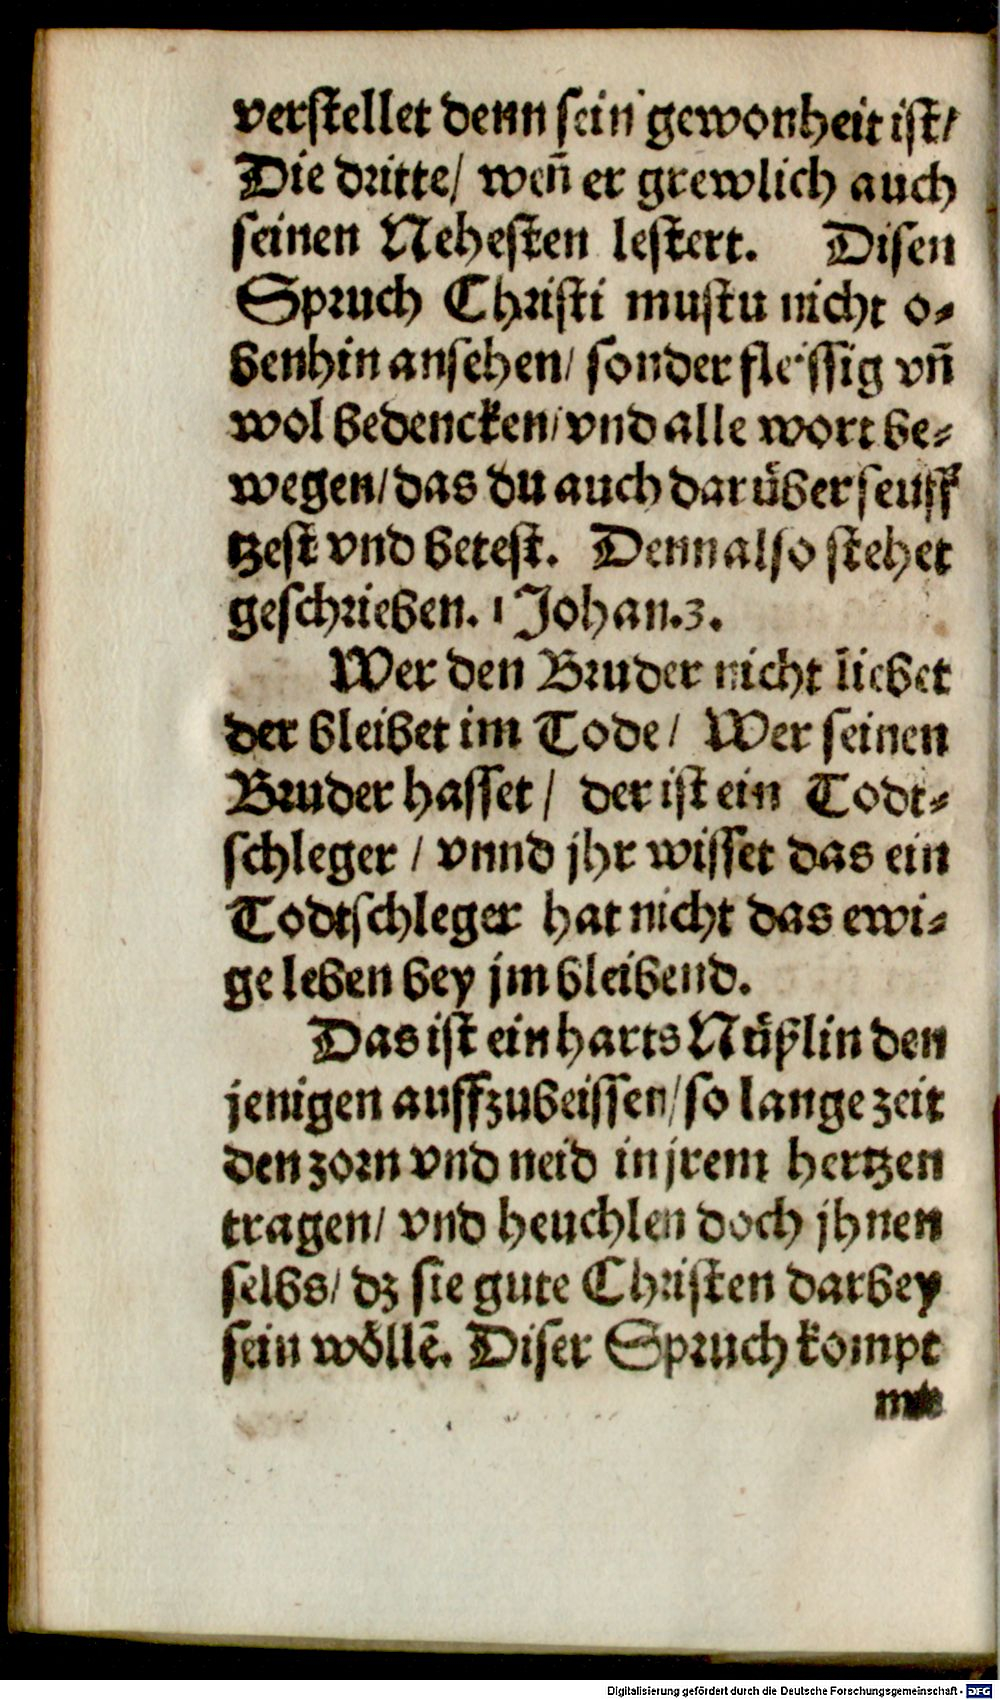 verstellet denn sein gewonheit ist/
Die dritte/ weñ er grewlich auch
seinen Nehesten lestert. Disen
Spruch Christi mustu nicht o-
benhin ansehen/ sonder fleissig vñ
wol bedencken/ vnd alle wort be-
wegen/ das du auch darüber seuff
tzest vnd betest. Denn also stehet
geschrieben. 1 Johan. 3.
Wer den Bruder nicht liebet
der bleibet im Tode/ Wer seinen
Bruder hasset/ der ist ein Todt-
schleger/ vnnd jhr wisset das ein
Todtschleger hat nicht das ewi-
ge leben bey jm bleibend.
Das ist ein harts Nüßlin den
jenigen auffzubeissen/ so lange zeit
den zorn vnd neid in jrem hertzen
tragen/ vnd heuchlen doch jhnen
selbs/ dz sie gute Christen darbey
sein wöllē. Diser Spruch kompt
Digitalisierung gefördert durch die Deutsche Forschungsgemeinschaft - DFG